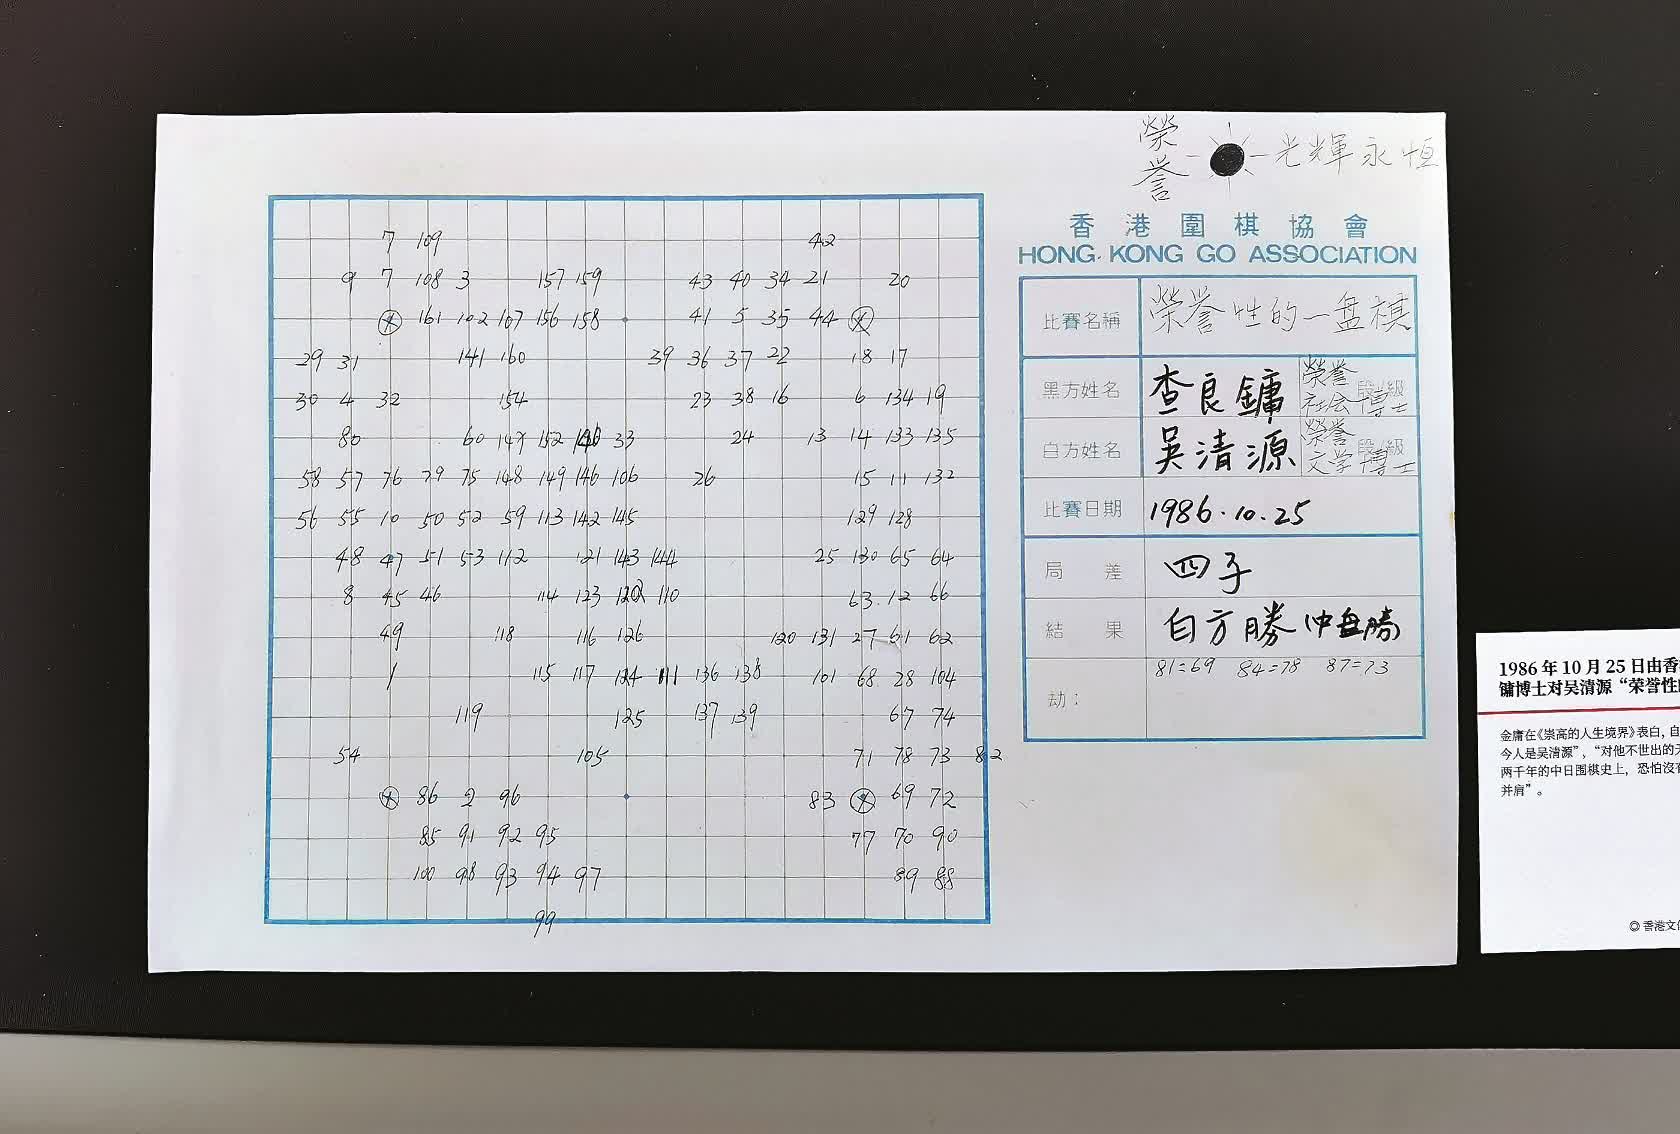 榮譽 光輝永恒
香港圍棋協會
HONG KONG GO ASSOCIATION
比賽名稱 榮譽性的一盘棋
黑方姓名 查良鏞 榮誉社会博士 段/級
白方姓名 吴清源 榮誉文学博士 段/級
比賽日期 1986.10.25
局差 四子
結果 白方勝 仲盘勝
81=69 84=78 87=73
劫：
7 109 42
9 7 108 3 157 159 43 40 34 21 20
161 102 107 156 158 41 5 35 44
29 31 141 160 39 36 37 22 18 17
30 4 32 154 23 38 16 6 134 19
80 60 147 152 33 24 13 14 133 135
58 57 76 79 75 148 149 146 106 26 15 11 132
56 55 10 50 52 59 113 142 145 129 128
48 47 51 53 112 121 143 144 25 130 65 64
8 45 46 114 123 110 63 12 66
49 118 116 126 120 131 27 61 62
1 115 117 124 111 136 138 101 68 28 104
119 125 137 139 67 74
54 105 71 78 73 82
86 2 96 83 69 72
85 91 92 95 77 70 90
100 98 93 94 97 89 88
99
1986年10月25日由香
镛博士对吴清源“荣誉性
金庸在《崇高的人生境界》表白，自
今人是吴清源”，“对他不世出的天
两千年的中日围棋史上，恐怕沒有
并肩”。
◎香港文